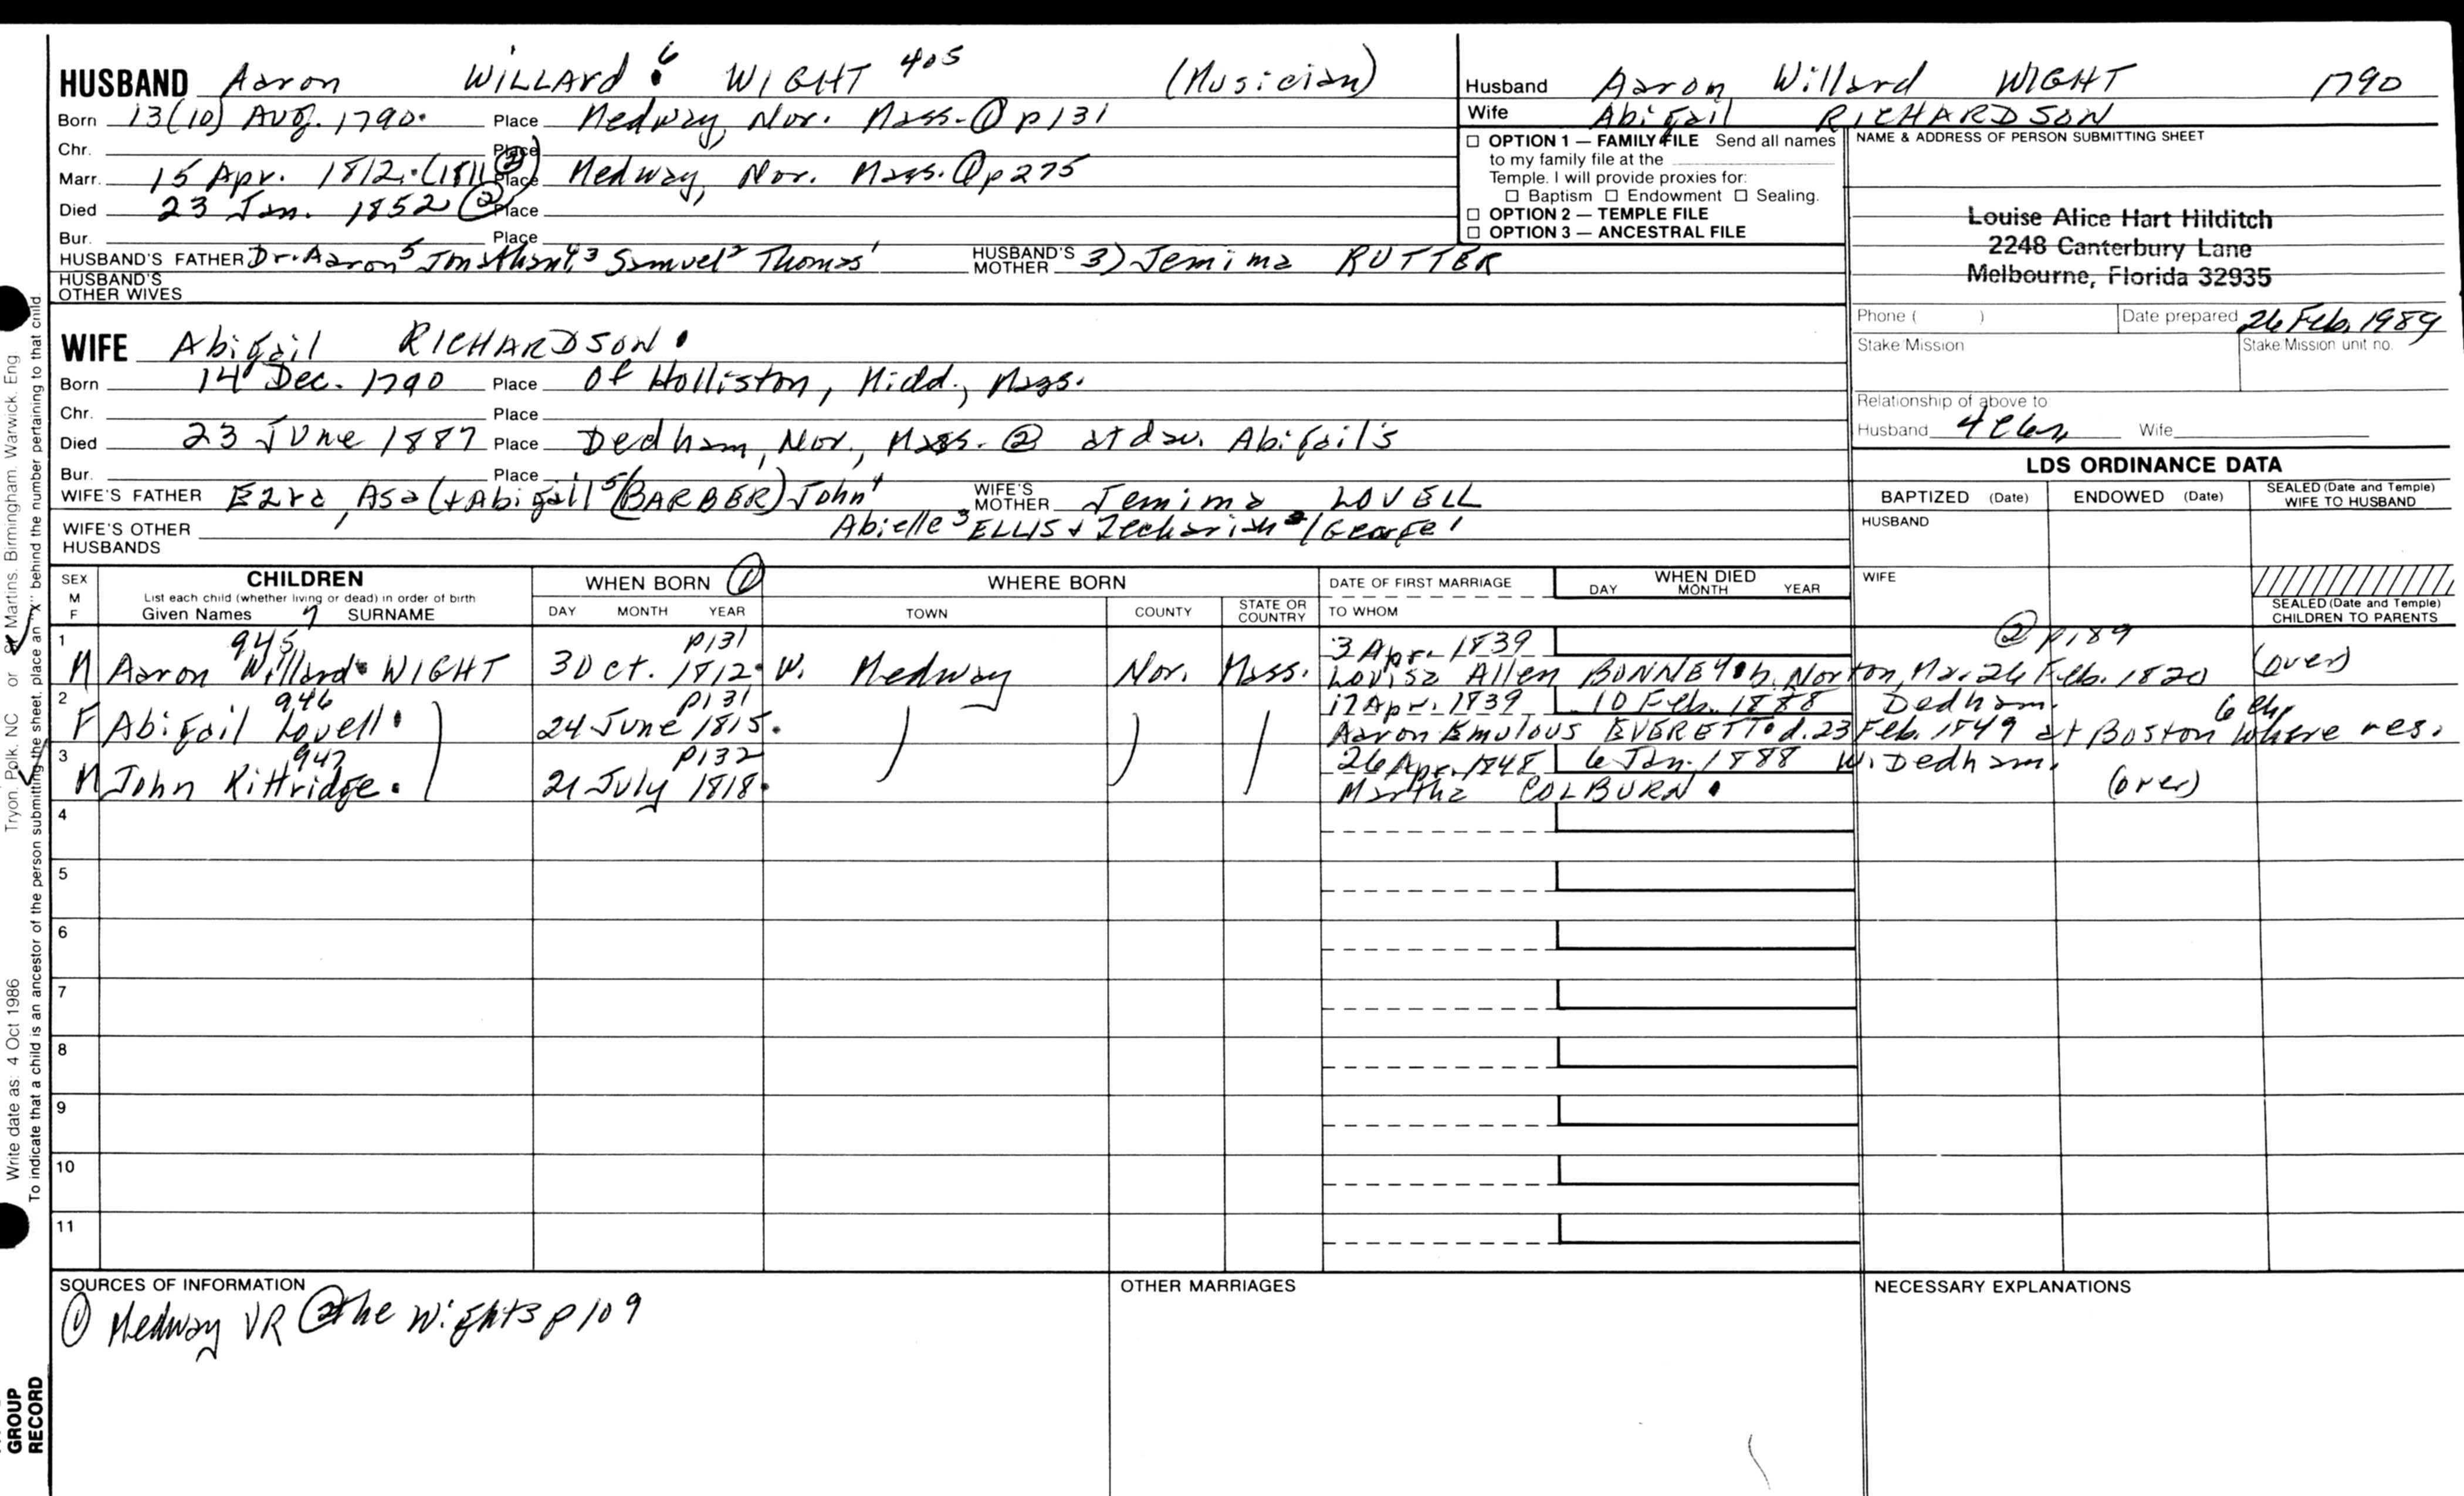 HUSBAND Aaron WILLARD 6 WIGHT 405 (Musician)
Born 13(10) AUG. 1790. Place Medway, Nor. Mass. ① p131
Chr. Place
Marr. 15 Apr. 1812. (1811 ②) Place Medway, Nor. Mass. ① p275
Died 23 Jan. 1852 ② Place
Bur. Place
HUSBAND'S FATHER Dr. Aaron 5 Jonathan 4,3 Samuel 2 Thomas 1 HUSBAND'S MOTHER 3) Jemima RUTTER
HUSBAND'S OTHER WIVES
Husband Aaron Willard WIGHT 1790
Wife Abigail RICHARDSON
☐ OPTION 1 — FAMILY FILE Send all names
to my family file at the
Temple. I will provide proxies for:
☐ Baptism ☐ Endowment ☐ Sealing.
☐ OPTION 2 — TEMPLE FILE
☐ OPTION 3 — ANCESTRAL FILE
NAME & ADDRESS OF PERSON SUBMITTING SHEET
Louise Alice Hart Hilditch
2248 Canterbury Lane
Melbourne, Florida 32935
Phone ( ) Date prepared 26 Feb. 1989
Stake Mission Stake Mission unit no.
Relationship of above to
Husband Wife
WIFE Abigail RICHARDSON.
Born 14 Dec. 1790 Place Of Holliston, Midd., Mass.
Chr. Place
Died 23 June 1887 Place Dedham, Nor., Mass. ② at dau. Abigail's
Bur. Place
WIFE'S FATHER Ezra, Asa (+ Abigail 5 (BARBER) John 4 WIFE'S MOTHER Jemima LOVELL
Abielle 3 ELLIS + Zechariah 2 / George 1
WIFE'S OTHER HUSBANDS
LDS ORDINANCE DATA
BAPTIZED (Date) ENDOWED (Date) SEALED (Date and Temple) WIFE TO HUSBAND
HUSBAND
WIFE
SEALED (Date and Temple) CHILDREN TO PARENTS
SEX M F CHILDREN List each child (whether living or dead) in order of birth Given Names 7 SURNAME
WHEN BORN ① DAY MONTH YEAR
WHERE BORN TOWN COUNTY STATE OR COUNTRY
DATE OF FIRST MARRIAGE TO WHOM
WHEN DIED DAY MONTH YEAR
1 945 p131 3 Apr. 1839 ② p189
M Aaron Willard WIGHT 3 Oct. 1812. W. Medway Nor. Mass. Louisa Allen BONNEY . b. Norton, Ma. 26 Feb. 1820 (over)
2 946 p131 17 Apr. 1839 10 Feb. 1888 Dedham. 6 ch.
F Abigail Lovell. 24 June 1815. Aaron Emulous EVERETT . d. 23 Feb. 1849 at Boston where res.
3 947 p132 26 Apr. 1848 6 Jan. 1888 W. Dedham.
M John Kittridge. 21 July 1818. Martha COLBURN. (over)
4
5
6
7
8
9
10
11
SOURCES OF INFORMATION
① Medway VR ② The Wights p109
OTHER MARRIAGES
NECESSARY EXPLANATIONS
Write date as: 4 Oct 1986 Tryon, Polk, NC or St Martins, Birmingham, Warwick, Eng
To indicate that a child is an ancestor of the person submitting the sheet, place an "X" behind the number pertaining to that child.
GROUP
RECORD